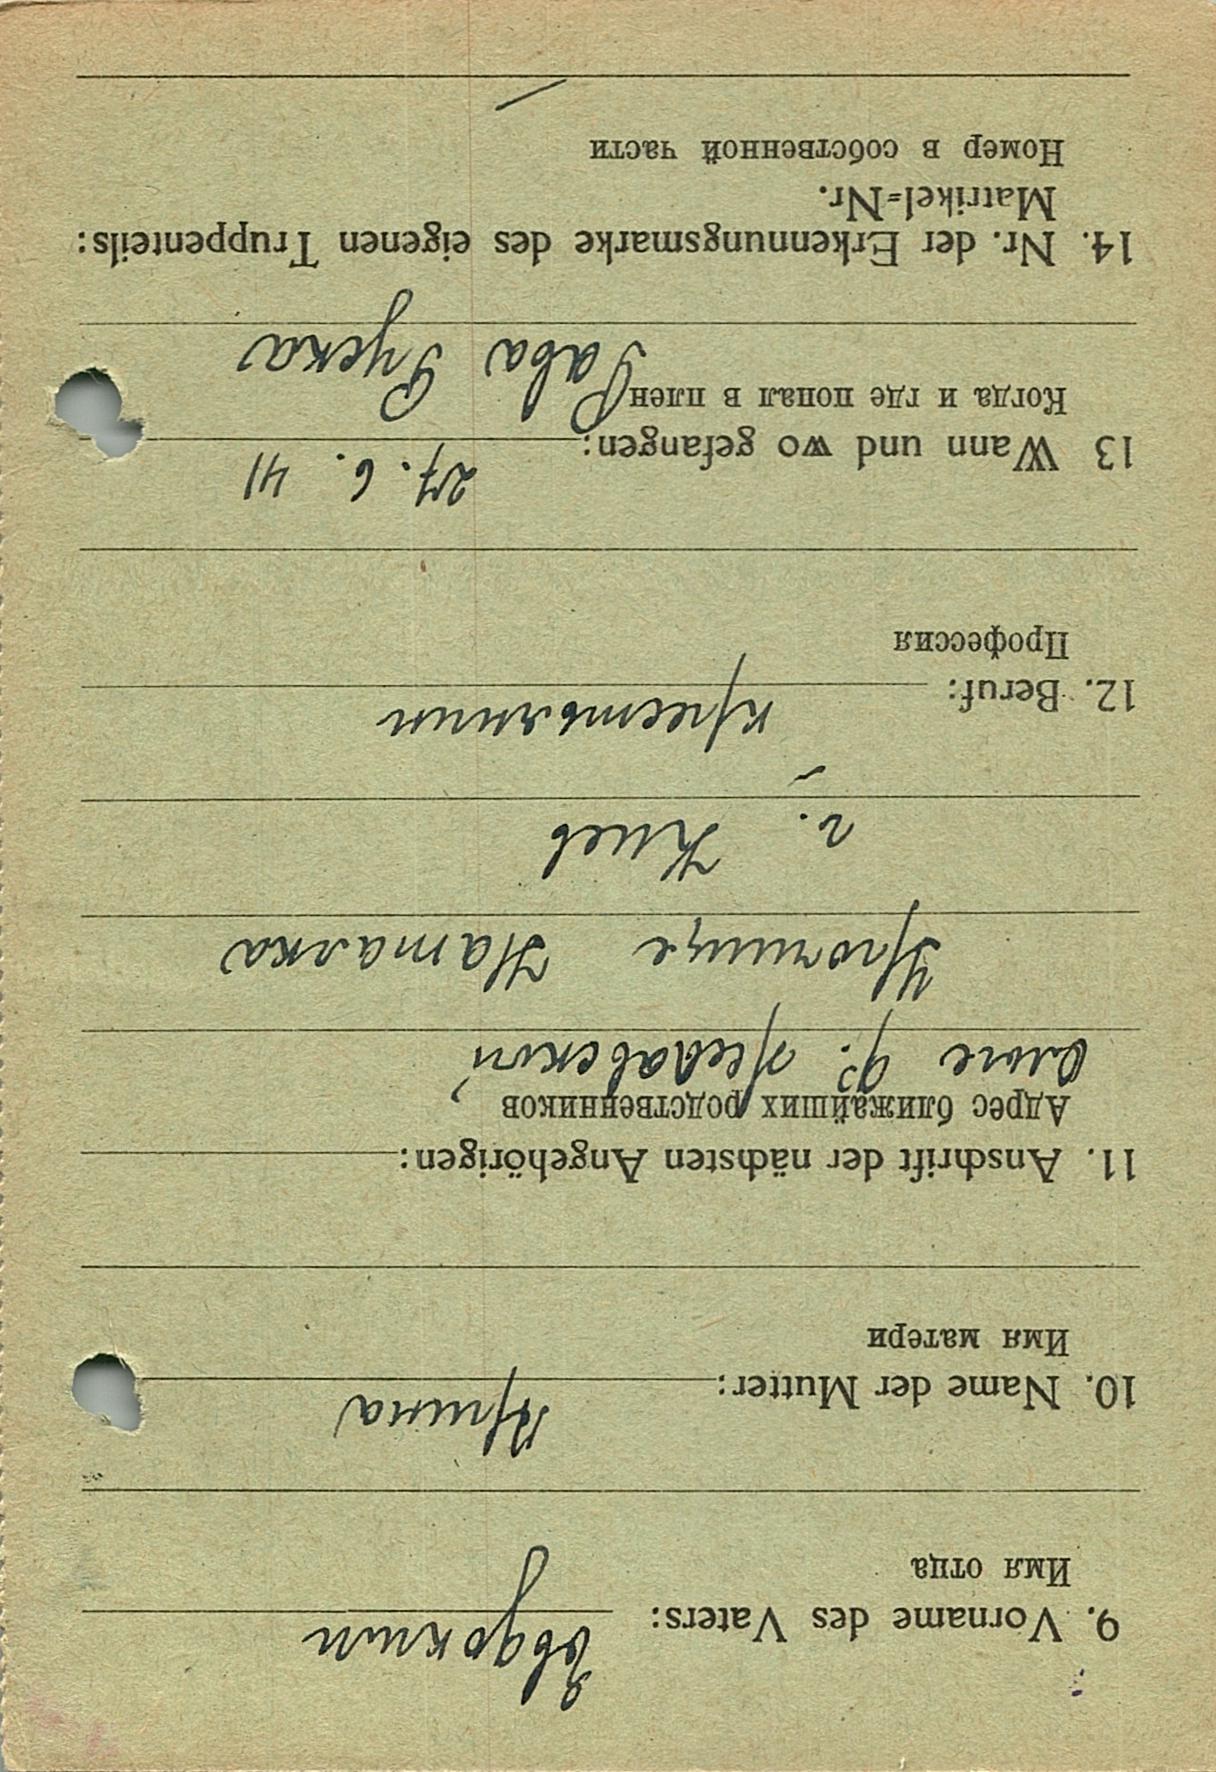 9. Vorname des Vaters: Евдоким
Имя отца
10. Name der Mutter: Ирина
Имя матери
11. Anschrift der nächsten Angehörigen:
Адрес ближайших родственников
Урочище Наталка
г. Киев
12. Beruf: крестьянин
Профессия
13 Wann und wo gefangen: 27. 6. 41
Когда и где попал в плен Рава Руска
14. Nr. der Erkennungsmarke des eigenen Truppenteils:
Matrikel=Nr.
Номер в собственной части